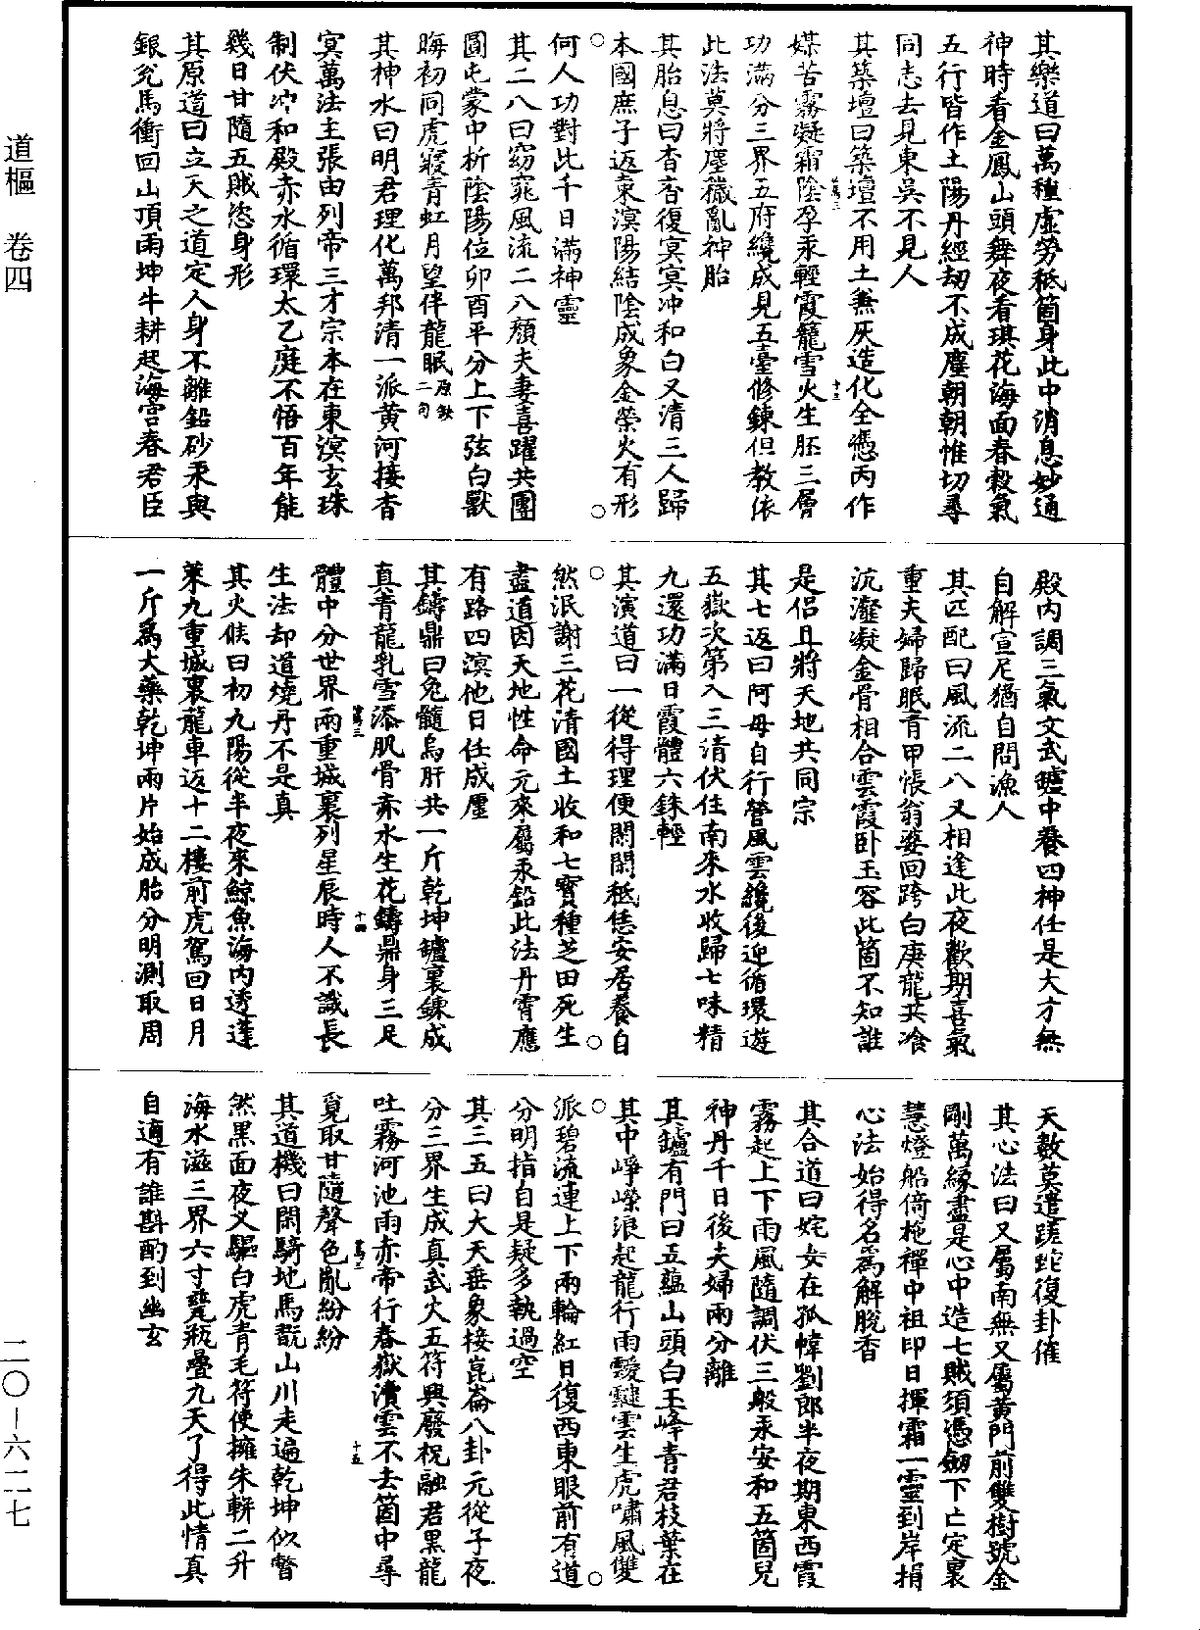 道樞 卷四
其樂道曰萬種虛勞秪箇身此中消息妙通
神時看金鳳山頭舞夜看琪花海面春穀氣
五行皆作土陽丹經劫不成塵朝朝惟切尋
同志去見東吳不見人
其築壇曰築壇不用土無灰造化全憑丙作
媒苦霧凝霜陰孕汞輕霞籠雪火生胚三層
功滿分三界五府纔成見五臺修鍊但教依
此法莫將塵穢亂神胎
其胎息曰杳杳復冥冥沖和白又清三人歸
本國庶子返東溟陽結陰成象金榮火有形
何人功對此千日滿神靈
其二八曰窈窕風流二八顏夫妻喜躍共團
圓屯蒙中析陰陽位卯酉平分上下弦白獸
晦初同虎寢青虹月望伴龍眠原缺二句
其神水曰明君理化萬邦清一派黃河接杳
冥萬法主張由列帝三才宗本在東溟玄珠
制伏沖和殿赤水循環太乙庭不悟百年能
幾日甘隨五賊恣身形
其原道曰立天之道定人身不離鉛砂汞與
銀兊馬衝回山頂雨坤牛耕起海宮春君臣
殿內調三氣文武鑪中養四神任是大才無
自解宣尼猶自問漁人
其匹配曰風流二八又相逢此夜歡期喜氣
重夫婦歸眠青甲帳翁婆回跨白庚龍共飡
沆瀣凝金骨相合雲霞卧玉容此箇不知誰
是侶且將天地共同宗
其七返曰阿母自行營風雲纔後迎循環遊
五嶽次第入三清伏住南來水收歸七味精
九還功滿日霞體六銖輕
其演道曰一從得理便閑閑秪恁安居養自
然泯謝三花清國土收和七寶種芝田死生
盡道因天地性命元來屬汞鉛此法丹霄應
有路四溟他日任成壥
其鑄鼎曰兔髓烏肝共一斤乾坤鑪裏鍊成
真青龍乳雪添肌骨赤水生花鑄鼎身三足
體中分世界兩重城裏列星辰時人不識長
生法却道燒丹不是真
其火候曰初九陽從半夜來鯨魚海內透蓬
萊九重城裏龍車返十二樓前虎駕回日月
一斤為大藥乾坤兩片始成胎分明測取周
天數莫遣蹉跎復卦催
其心法曰又屬南無又屬黃門前雙樹號金
剛萬緣盡是心中造七賊須憑劒下亡定裏
慧燈船倚柂禪中祖印日揮霜一靈到岸捐
心法始得名為解脫香
其合道曰姹女在孤幃劉郎半夜期東西霞
霧起上下雨風隨調伏三般汞安和五箇兒
神丹千日後夫婦兩分離
其鑪有門曰五蘊山頭白玉峰青君枝葉在
其中崢嶸浪起龍行雨靉靆雲生虎嘯風雙
派碧流連上下兩輪紅日復西東眼前有道
分明指自是疑多執過空
其三五曰大天垂象接崑崙八卦元從子夜
分三界生成真武火五符興廢祝融君黑龍
吐霧河池雨赤帝行春嶽瀆雲不去箇中尋
覓取甘隨聲色亂紛紛
其道機曰閑騎地馬翫山川走遍乾坤似瞥
然黑面夜叉驅白虎青毛符使擁朱軿二升
海水滋三界六寸甆瓶疊九天了得此情真
自適有誰斟酌到幽玄
二〇-六二七